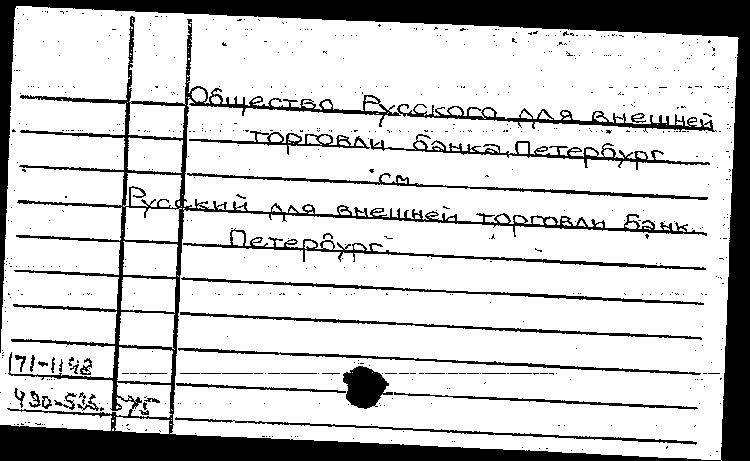 Общество Русского для внешней
торговли банка, Петербург
см.
Русский для внешней торговли банк.
Петербург.
171-1148
490-536, 575